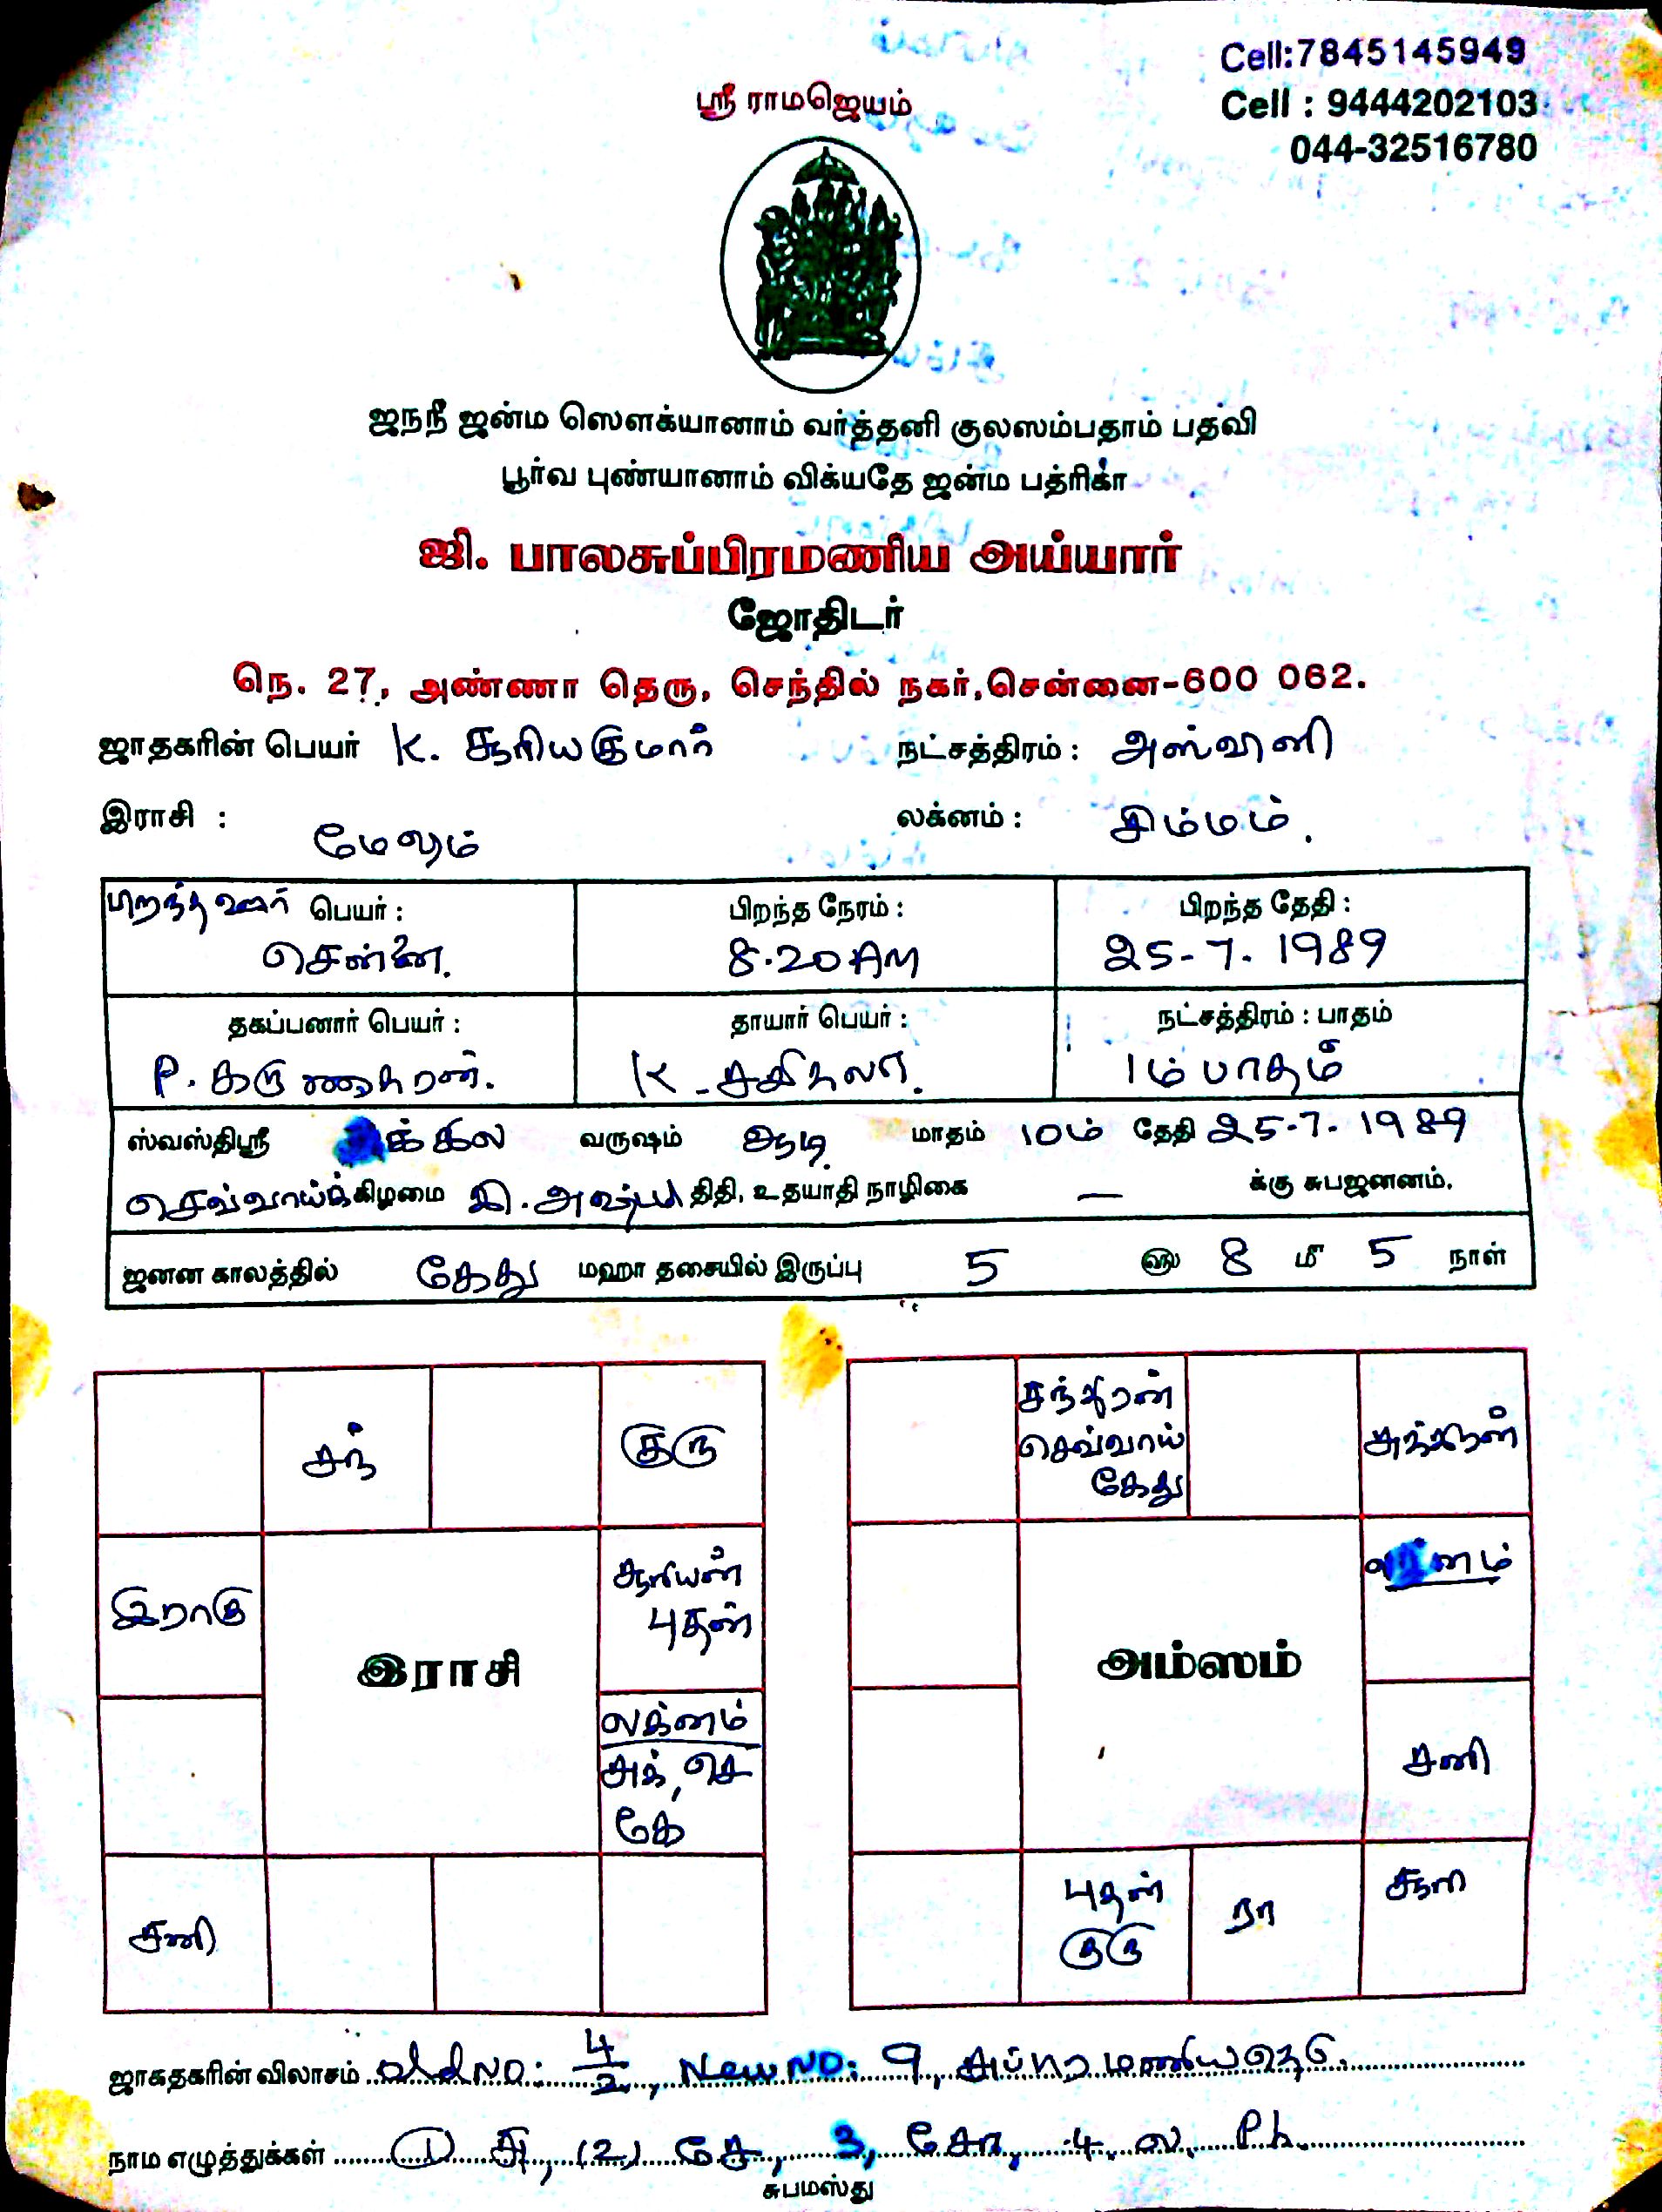 Cell:7845145949
ஸ்ரீ ராமஜெயம்
Cell : 9444202103
044-32516780
ஜநநீ ஜன்ம ஸௌக்யானாம் வர்த்தனி குலஸம்பதாம் பதவி
பூர்வ புண்யானாம் விக்யதே ஜன்ம பத்ரிகா
ஜி. பாலசுப்பிரமணிய அய்யார்
ஜோதிடர்
நெ. 27, அண்ணா தெரு, செந்தில் நகர்,சென்னை-600 062.
ஜாதகரின் பெயர் K. சூரியகுமார் நட்சத்திரம் : அஸ்வனி
இராசி : மேஷம் லக்னம் : சிம்மம்.
பிறந்த ஊர் பெயர் : பிறந்த நேரம் : பிறந்த தேதி :
சென்னை. 8.20 AM 25-7.1989
தகப்பனார் பெயர் : தாயார் பெயர் : நட்சத்திரம் : பாதம்
P. கருணாகரன். K. சசிகலா. 1ம் பாதம்
ஸ்வஸ்திஸ்ரீ சுக்கில வருஷம் ஆடி மாதம் 10ம் தேதி 25-7.1989
செவ்வாய்க்கிழமை தி. அஷ்டமி திதி, உதயாதி நாழிகை — க்கு சுபஜனனம்.
ஜனன காலத்தில் கேது மஹா தசையில் இருப்பு 5 ௵ 8 மீ 5 நாள்
சந் குரு
இராகு சூரியன்
புதன்
இராசி
லக்னம்
அக், செ
கே
சனி
சந்திரன்
செவ்வாய்
கேது
சுக்கிரன்
லக்னம்
அம்ஸம்
சனி
புதன்
குரு
ரா
சூரி
ஜாகதகரின் விலாசம் Old NO: 4/2, New NO: 9, சுப்ரமணிய தெரு.
நாம எழுத்துக்கள் (1) சு, (2) சே, 3, சோ, 4. ல. Ph.
சுபமஸ்து